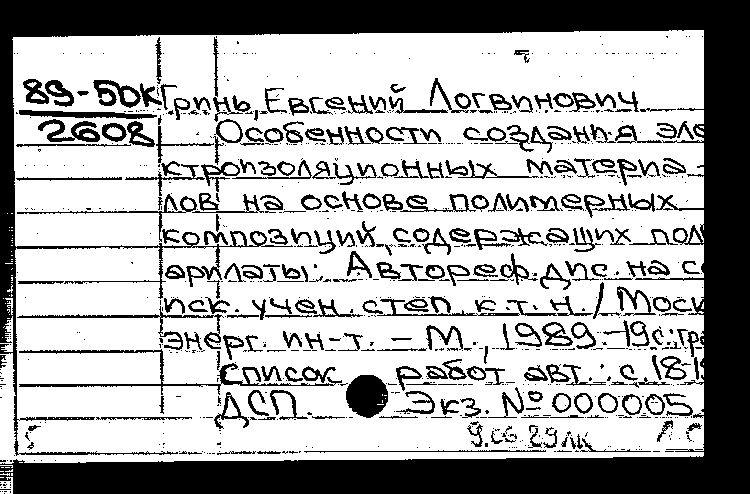 89-5DК Гринь, Евгений Логвинович
2608 Особенности создания эле
ктроизоляционных материа-
лов на основе полимерных
композиций, содержащих пол
арилаты: Автореф. дис. на со
иск. учен. степ. к.т.н. / Моск
энерг. ин-т. – М., 1989.-19с.:гра
Список работ авт.: с.18-19
ДСП. Экз. № 000005.
5 9.06.89